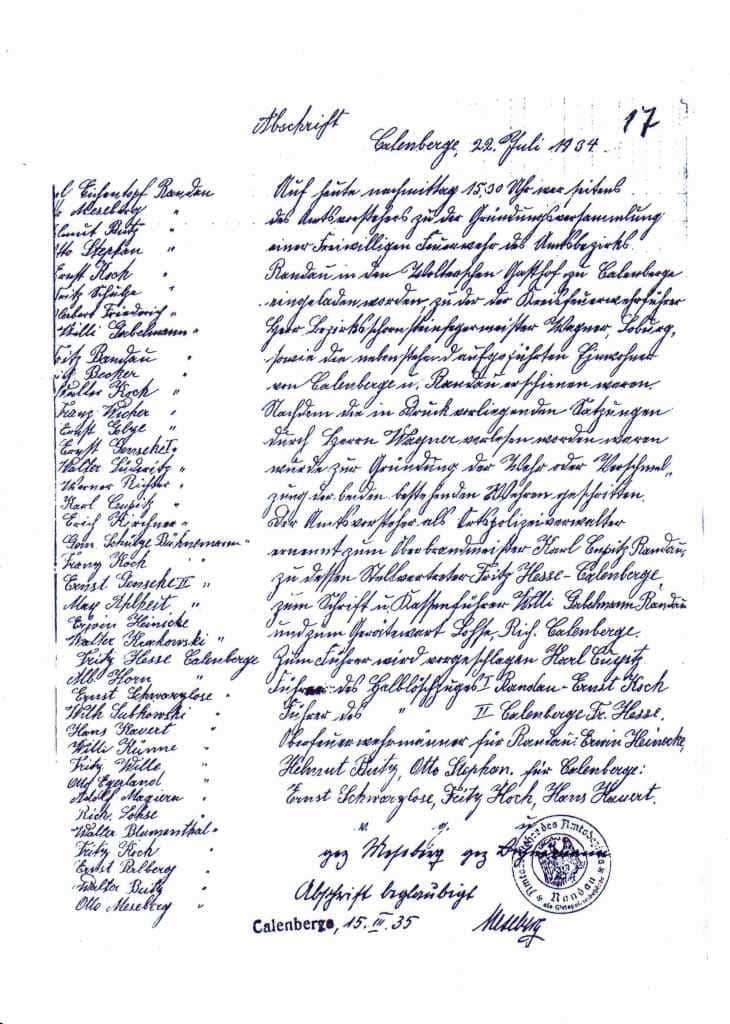 Abschrift
17
Calenberge, 22. Juli 1934.
Eichentopf Randau
Meseberg "
Otto Stephan "
Ernst Koch "
Fritz Schulze "
Friedrich "
Willi Gabelmann "
Fritz Randau "
Becker "
Walter Koch "
Franz Wicher "
Ernst
Ernst
Walter
Werner Richter "
Karl
Erich Kirchner "
Schulze
Franz Koch "
Ernst II "
Max Ahlheit "
Erwin Heinicke
Walter "
Fritz Hesse Calenberge
Alb. Horn "
Ernst Schwarzlose "
Willi "
Hans "
Willi Künne "
Fritz Wille "
Otto "
Adolf "
Rich. Lohse "
Walter Blumenthal "
Fritz Koch "
Ernst "
Walter "
Otto Meseberg "
Auf heute nachmittag 15.30 Uhr war seitens
des Amtsvorstehers zu der Gründungsversammlung
einer Freiwilligen Feuerwehr des Amtsbezirks
Randau in den Gasthof zu Calenberge
eingeladen worden, zu der der Kreisfeuerwehrführer
Herr Bezirksschornsteinfegermeister Wagner, Loburg,
sowie die nebenstehend aufgeführten Einwohner
von Calenberge u. Randau erschienen waren.
Nachdem die in Druck vorliegenden Satzungen
durch Herrn Wagner verlesen worden waren
wurde zur Gründung der Wehr oder Verschmel„
zung der beiden bestehenden Wehren geschritten.
Der Amtsvorsteher als Ortspolizeiverwalter
ernennt zum Oberbrandmeister Karl Randau,
zu dessen Stellvertreter Fritz Hesse-Calenberge
zum Schrift u. Kassenführer Willi Gabelmann Randau
und zum Gerätewart Lohse, Rich. Calenberge.
Zum Führer wird vorgeschlagen Karl
Führer des Halblöschzuges I Randau-Ernst Koch
Führer des " II Calenberge Fr. Hesse.
Oberfeuerwehrmänner für Randau: Erwin Heinicke,
Helmut Otto Stephan. für Calenberge:
Ernst Schwarzlose, Fritz Koch, Hans
v. g. u.
gez Meseberg gez
Abschrift beglaubigt
Calenberge, 15. III. 35
Meseberg
Randau